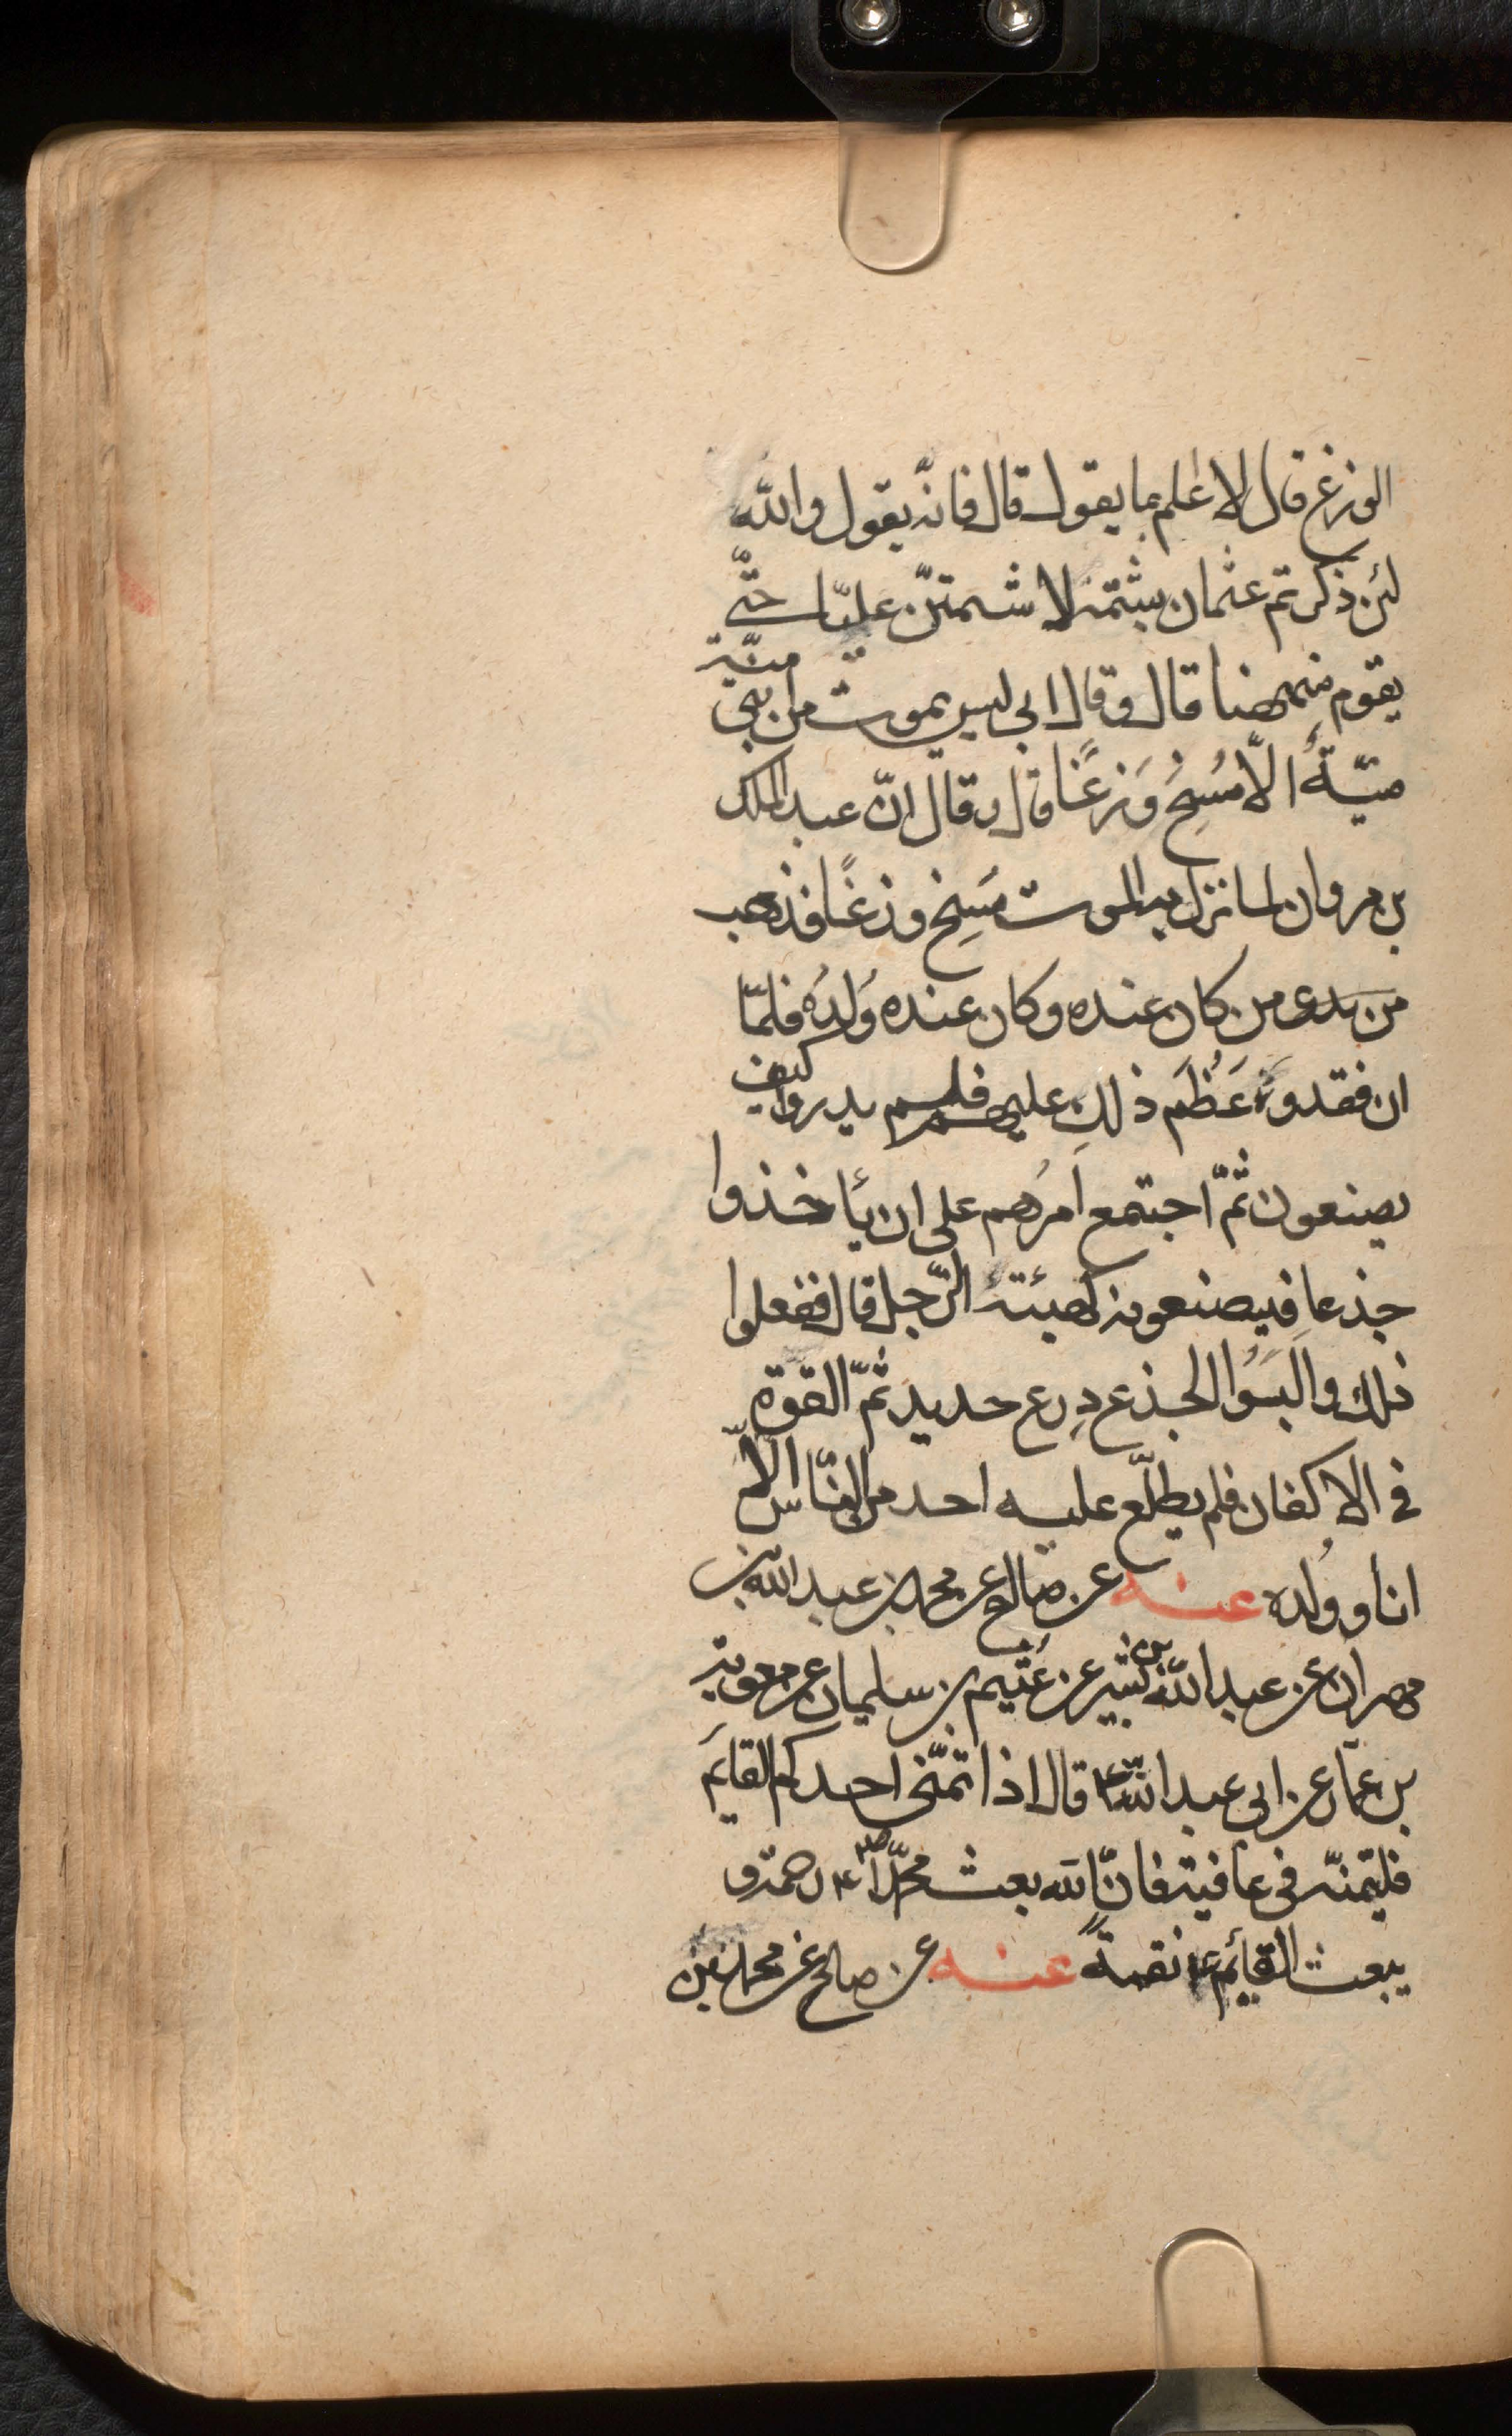 الوزغ قال لا اعلم بما يقول قال فانّه يقول والله
لئن ذكرتم عثمان بشتمه لاشتمنّ عليّا حتّى
يقوم من ههنا قال وقال ابى ليس يموت من بنى
ميّتة
ميّة الّا مُسِخَ وَزَغًا قال وقال انّ عبد الملك
بن مروان لما نزل به الموت مُسِخ وزغًا فذهب
من يدى من كان عنده وكان عنده وُلدُه فلمّا
ان فقدوه عَظُمَ ذلك عليهم فلم يدروا كيف
يصنعون ثمّ اجتمع امرُهم على ان يأخذوا
جذعا فيصنعونه كهيئة الرّجل قال ففعلوا
ذلك والبَسُوا الجذع دِرع حديد ثمّ القوه
فى الاكفان فلم يطلّع عليه احد من النّاس الّا
انا وولده عنه عن صالح عن محمد بن عبد الله بن
مهران عن عبد الله بن بشير عن عُثيم بن سليمان عن معوية
بن عمّار عن ابى عبد الله ع قال اذا تمنّى احدكم القايَم
فليتمنّه فى عافية فانّ الله بعث محمّدا ص ع رحمة و
يبعث القائم ع نقمةً عنه عن صالح عن محمد بن